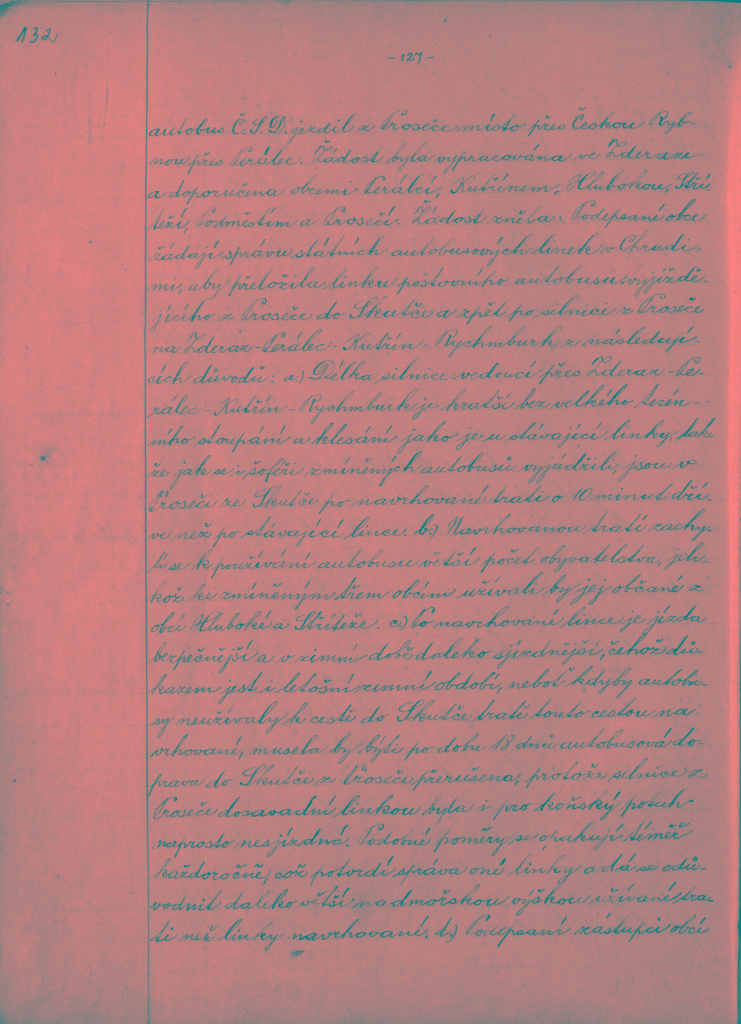 132.
- 127 -
autobus Č.S.D. jezdil z Proseče místo přes Českou Ryb-
nou přes Perálec. Žádost byla vypracována ve Zderazi
a doporučena obcemi Perálcí, Kutřínem, Hlubokou, Stří-
teží, Podměstím a Prosečí. Žádost zněla: Podepsané obce
žádají správu státních autobusových linek v Chrudi-
mi, aby přeložila linku poštovního autobusu vyjíždě-
jícího z Proseče do Skutče a zpět po silnici z Proseče
na Zderaz-Perálec-Kutřín-Rychmburk z následují-
cích důvodů: a.) Délka silnice vedoucí přes Zderaz-Pe-
rálec-Kutřín-Rychmburk je kratší bez velkého terén-
ního stoupání a klesání jako je u stávající linky, tak-
že jak se i šoféři zmíněných autobusů vyjádřili, jsou v
Proseči ze Skutče po navrhované trati o 10 minut dří-
ve než po stávající lince. b.) Navrhovanou tratí zachy-
tí se k používání autobusu větší počet obyvatelstva, jeli-
kož ke zmíněným třem obcím užívali by jej občané z
obcí Hluboké a Střiteže. c.) Po navrhované lince je jízda
bezpečnější a v zimní době daleko sjízdnější, čehož dů-
kazem jest i letošní zimní období, neboť kdyby autobu-
sy neužívaly k cestě do Skutče tratě touto cestou na-
vrhované, musela by býti po dobu 18 dnů autobusová do-
prava do Skutče z Proseče přerušena, protože silnice z
Proseče dosavadní linkou byla i pro koňský potah
naprosto nesjízdná. Podobné poměry se opakují téměř
každoročně, což potvrdí správa oné linky a dá se odů-
vodnit daleko větší nadmořskou výškou užívané tra-
ti než linky navrhované. d.) Podepsaní zástupci obcí